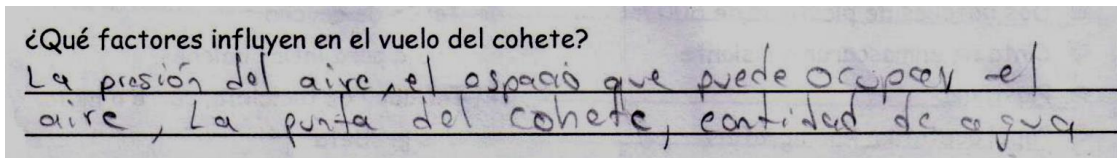 ¿Qué factores influyen en el vuelo del cohete?
La presión del aire, el espacio que puede ocupar el
aire, La punta del cohete, cantidad de agua